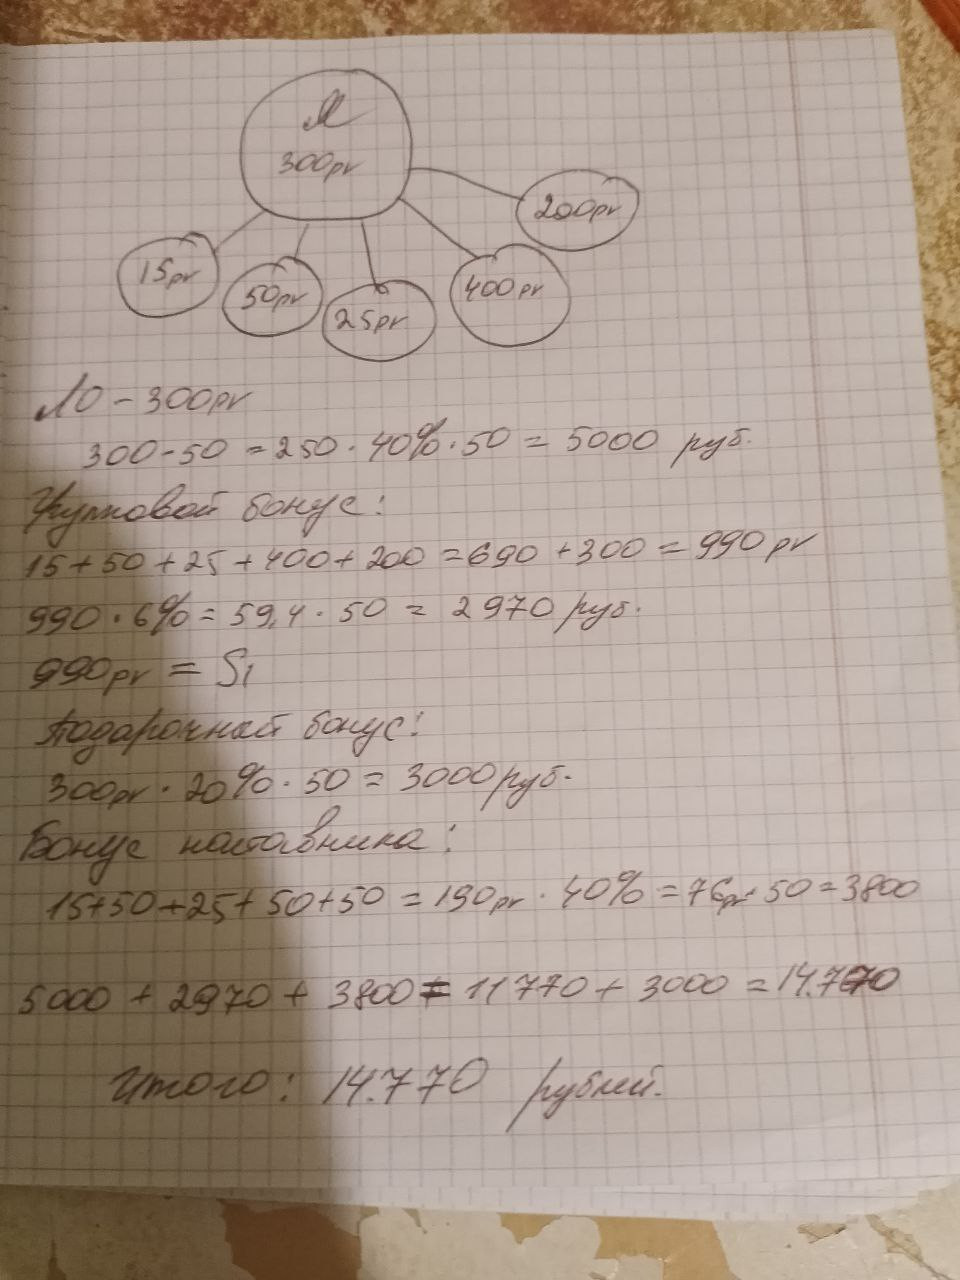 Я
300pv
200pv
15pv
50pv
25pv
400pv
ЛО - 300pv
300-50 = 250 · 40% · 50 = 5000 руб.
Групповой бонус:
15+50+25+400+200 = 690 +300 = 990 pv
990 · 6% = 59,4 · 50 = 2970 руб.
990pv = S1
Подарочный бонус:
300pv · 20% · 50 = 3000 руб.
Бонус наставника:
15+50+25+50+50 = 190pv · 40% = 76pv · 50 = 3800
5000 + 2970 + 3800 = 11770 + 3000 = 14.770
Итого: 14.770 рублей.